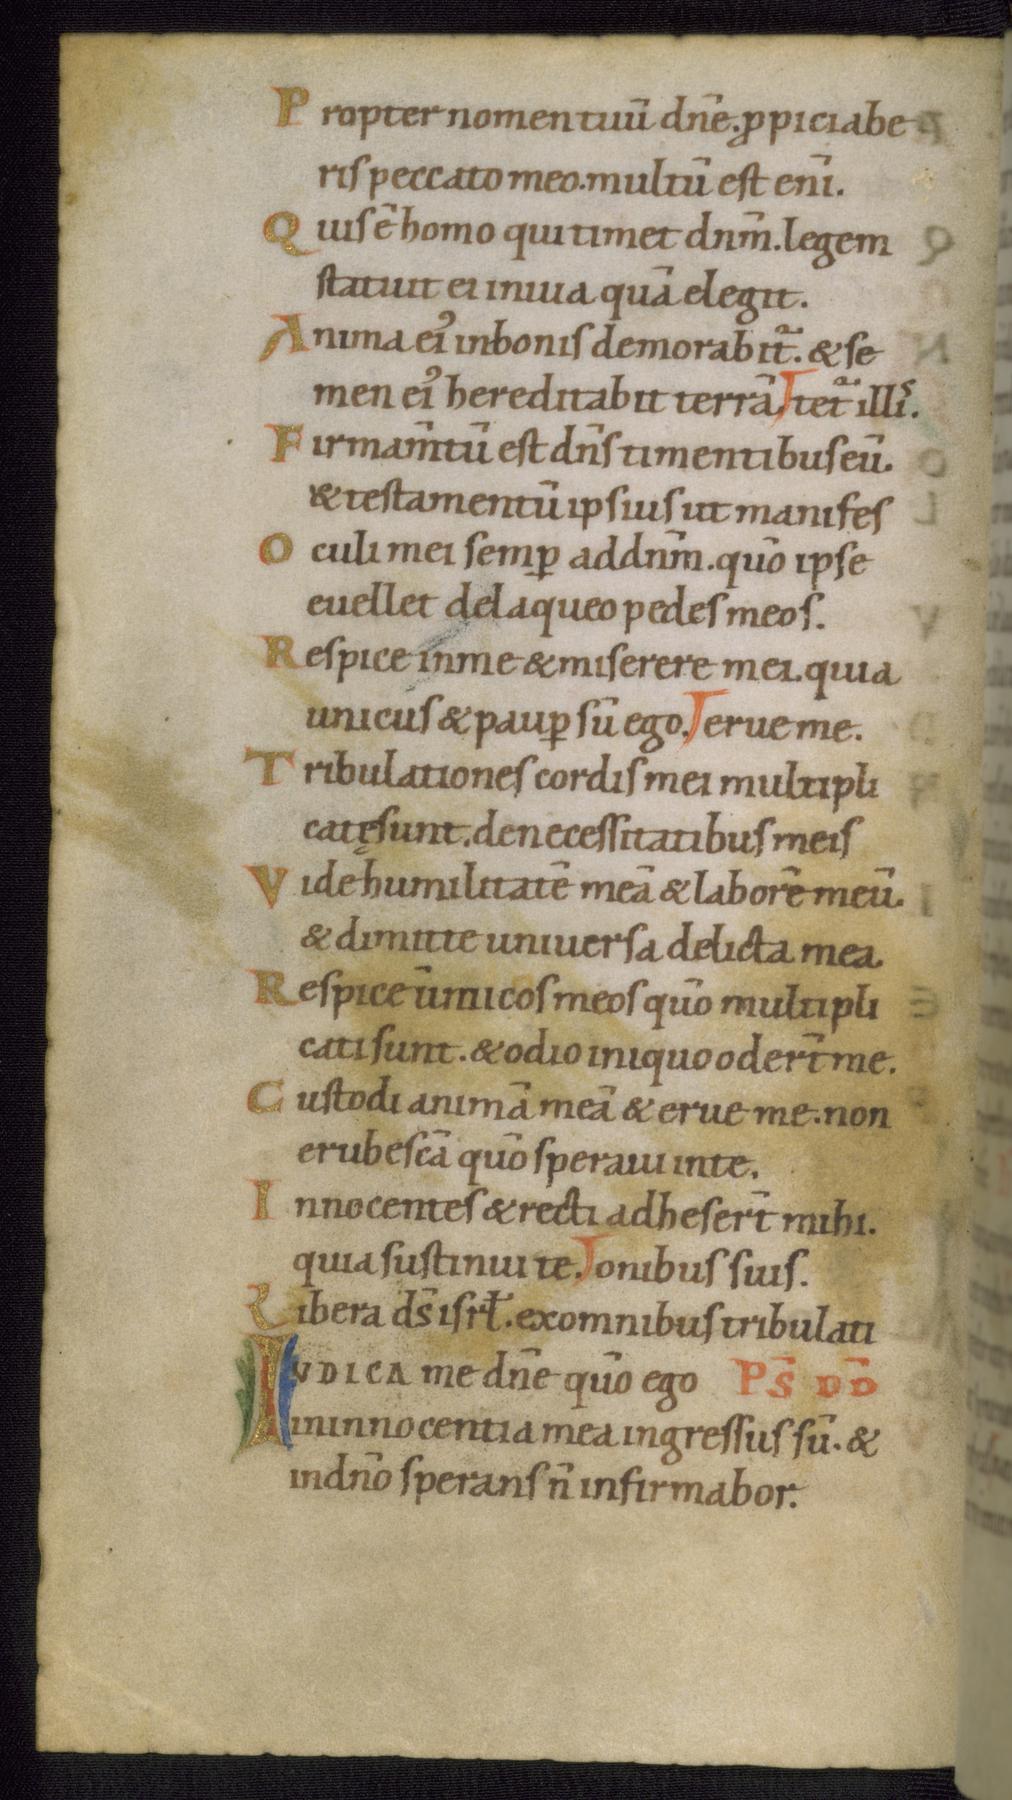 Propter nomen tuū dn̄e. ꝓpiciabe
ris peccato meo. multū est enī.
Quis ē homo qui timet dnm̄. legem
statuit ei in uia quā elegit.
Anima eiꝰ in bonis demorabit᷑. & se
men eiꝰ hereditabit terrā. tet᷑ illiˢ.
Firmam̄tū est dn̄s timentibus eū.
& testamentū ipsius ut manifes
Oculi mei semꝑ ad dnm̄. quō ipse
euellet de laqueo pedes meos.
Respice in me & miserere mei. quia
unicus & pauꝑ sū ego. erue me.
Tribulationes cordis mei multipli
catę sunt. de necessitatibus meis
Vide humilitatē meā & laborē meū.
& dimitte uniuersa delicta mea.
Respice inimicos meos quō multipli
cati sunt. & odio iniquo oder̄t me.
Custodi animā meā & erue me. non
erubescā quō speraui in te.
Innocentes & recti adheser̄t mihi.
quia sustinui te. onibus suis.
Libera ds̄ isrł. ex omnibus tribulati
IVDICA me dn̄e quō ego PS̄ DD̄
in innocentia mea ingressus sū. &
in dn̄o sperans n̄ infirmabor.